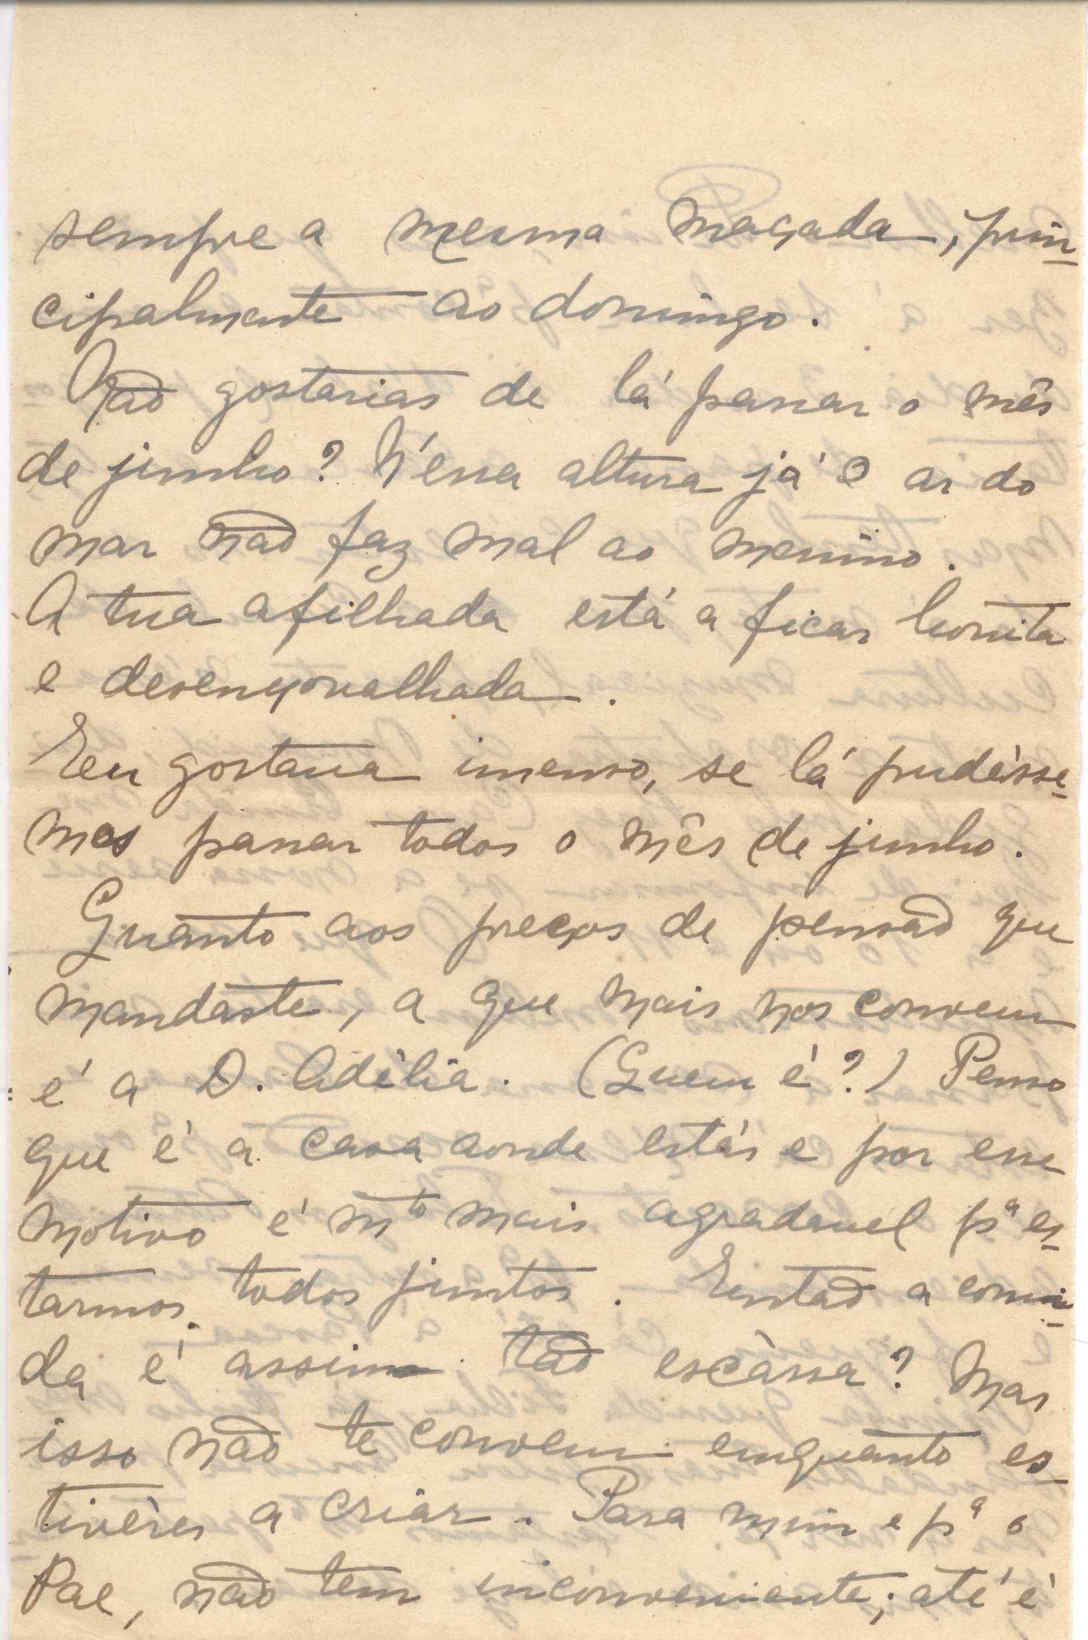 sempre a mesma maçada, prin-
cipalmente ao domingo.
Não gostarias de lá passar o mês
de junho? N'essa altura já o ar do
mar não faz mal ao menino.
A tua afilhada está a ficar bonita
e desengovalhada.
Eeu gostava imenso, se lá pudésse-
mos passar todos o mês de junho.
Quanto aos preços de pensão que
mandaste, a que mais nos convem
é a D. Adélia. (Quem é?) Penso
que é a casa aonde estás e por esse
motivo é mto mais agradavel pª es-
tarmos todos juntos. Então a comi-
da é assim tão escàssa? Mas
isso não te convem emquanto es-
tivères a criar. Para mim e pª o
Pae, não tem inconveniente; até é